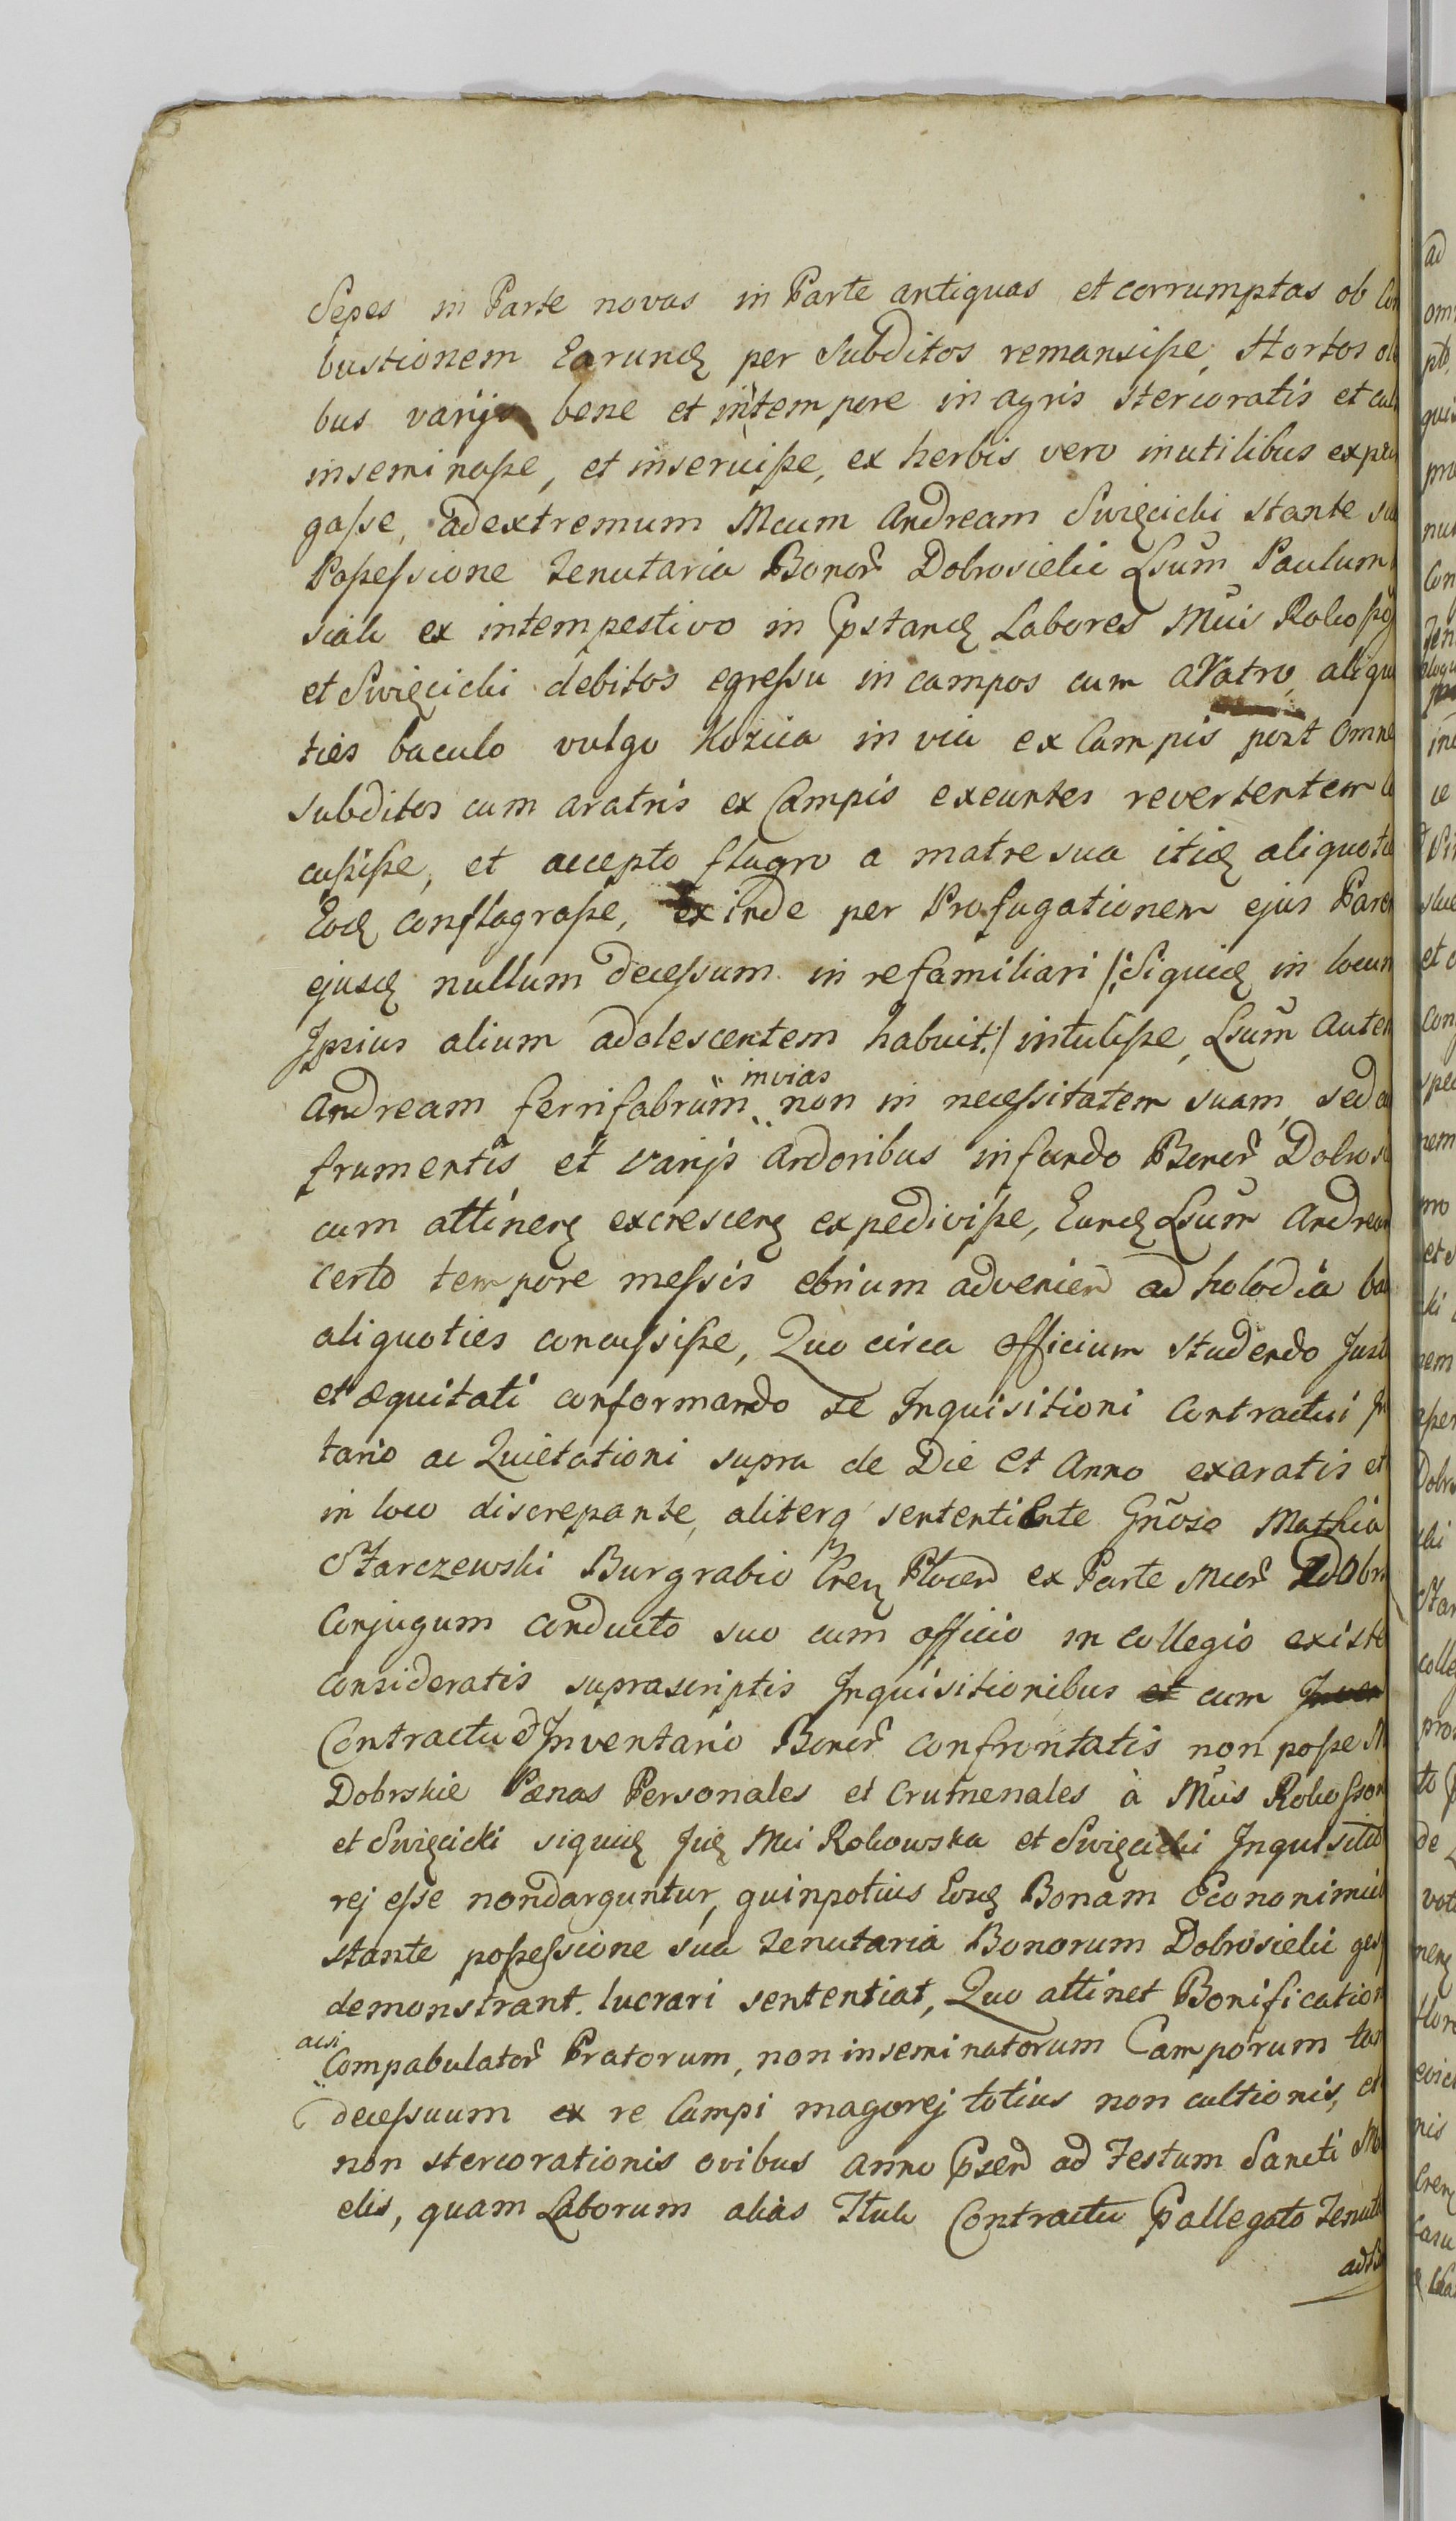 Sepes in Parte novas in Parte antiquas et corrumptas ob Com
bustionem Earundȩ per Subditos remansiſse, Hortos ole
bus varijs bene et intempore in agris stercoratis et cul
inseminaſse, et inserviſse, ex herbis vero inutilibus expur
gaſse, ad extremum Mcum Andream Swięcicki stante sua
Poſseſsione Tenutaria Bonor̃ Dobrosielic Lsum̃ Paulum
siak ex intempestivo in Pstandȩ Labores Mcis Rokoſsow
et Swięcicki debitos egreſsu in campos cum aratro, aliquo
ties baculo vulgo Kozica in via ex Campis post omnes
subditos cum aratris ex Campis exeuntes revertentem
cuſsiſse, et accepto flagro a matre sua itidȩ aliquotie
Eodȩ conflagraſse, exinde per Profugationem ejus Paren
ejusdȩ nullum deceſsum in re familiari /:siquidȩ in locum
Ipsius alium adolescentem habuit:/ intuliſse, Lsum̃ Autem
invias
Andream ferrifabrum non in neceſsitatem suam, sed cu
frumentis et varijs Ardoribus in fundo Bonor̃ Dobrosi
cum attinenȩ excrescenȩ expediviſse, Eundȩ Lsum̃ Andream
certo tempore meſsis ebrium advenien ad holodia bac
aliquoties concuſsiſse, Quo circa officium studendo Just
et æquitati conformando se Inquisitioni Contractui In
tario ac Quietationi supra de Die et Anno exaratis et
in loco discrepante, aliterq sententiente Gñoso Mathia
Starczewski Burgrabio Cren Plocen ex Parte Mcor̃ Dobr
Conjugum conducto suo cum officio in collegio existe
consideratis suprascriptis Inquisitionibus et cum Inven
Contractu et Inventario Bonor̃ confrontatis non poſse M
Dobrskie Pœnas Personales et Crumenales à Mcis Rokoſsow
et Swięcicki siquidȩ Jidȩ Mci Rokowska et Swięcicki Inquisitio
rej eſse non darguntur, quinpotius Eosdȩ Bonam Œconomicā
stante poſseſsione sua Tenutaria Bonorum Dobrosielic ges
demonstrant. lucrari sententiat, Quo attinet Bonification
acsi
Compabulator̃ Pratorum, non inseminatorum Camporum tas
deceſsuum ex re Campi magorej totius non cultionis, et
non stercorationis ovibus anno Psen ad Festum Sancti Mi
elis, quam Laborum alias Tluk Contractu Pallegato Tenuta
adst